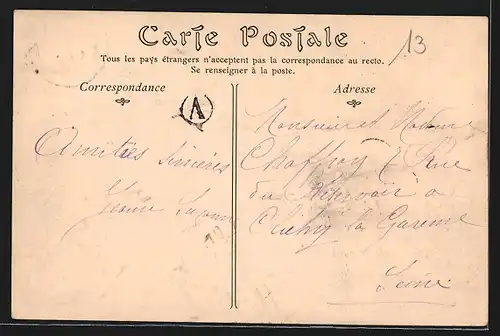 Carte Postale
13
Tous les pays étrangers n'acceptent pas la correspondance au recto.
Se renseigner à la poste.
Correspondance
Adresse
A
Amitiés sincères
Jeanne
Monsieur et Madame
7 Rue
du Réservoir a
Clichy la Garenne
Seine